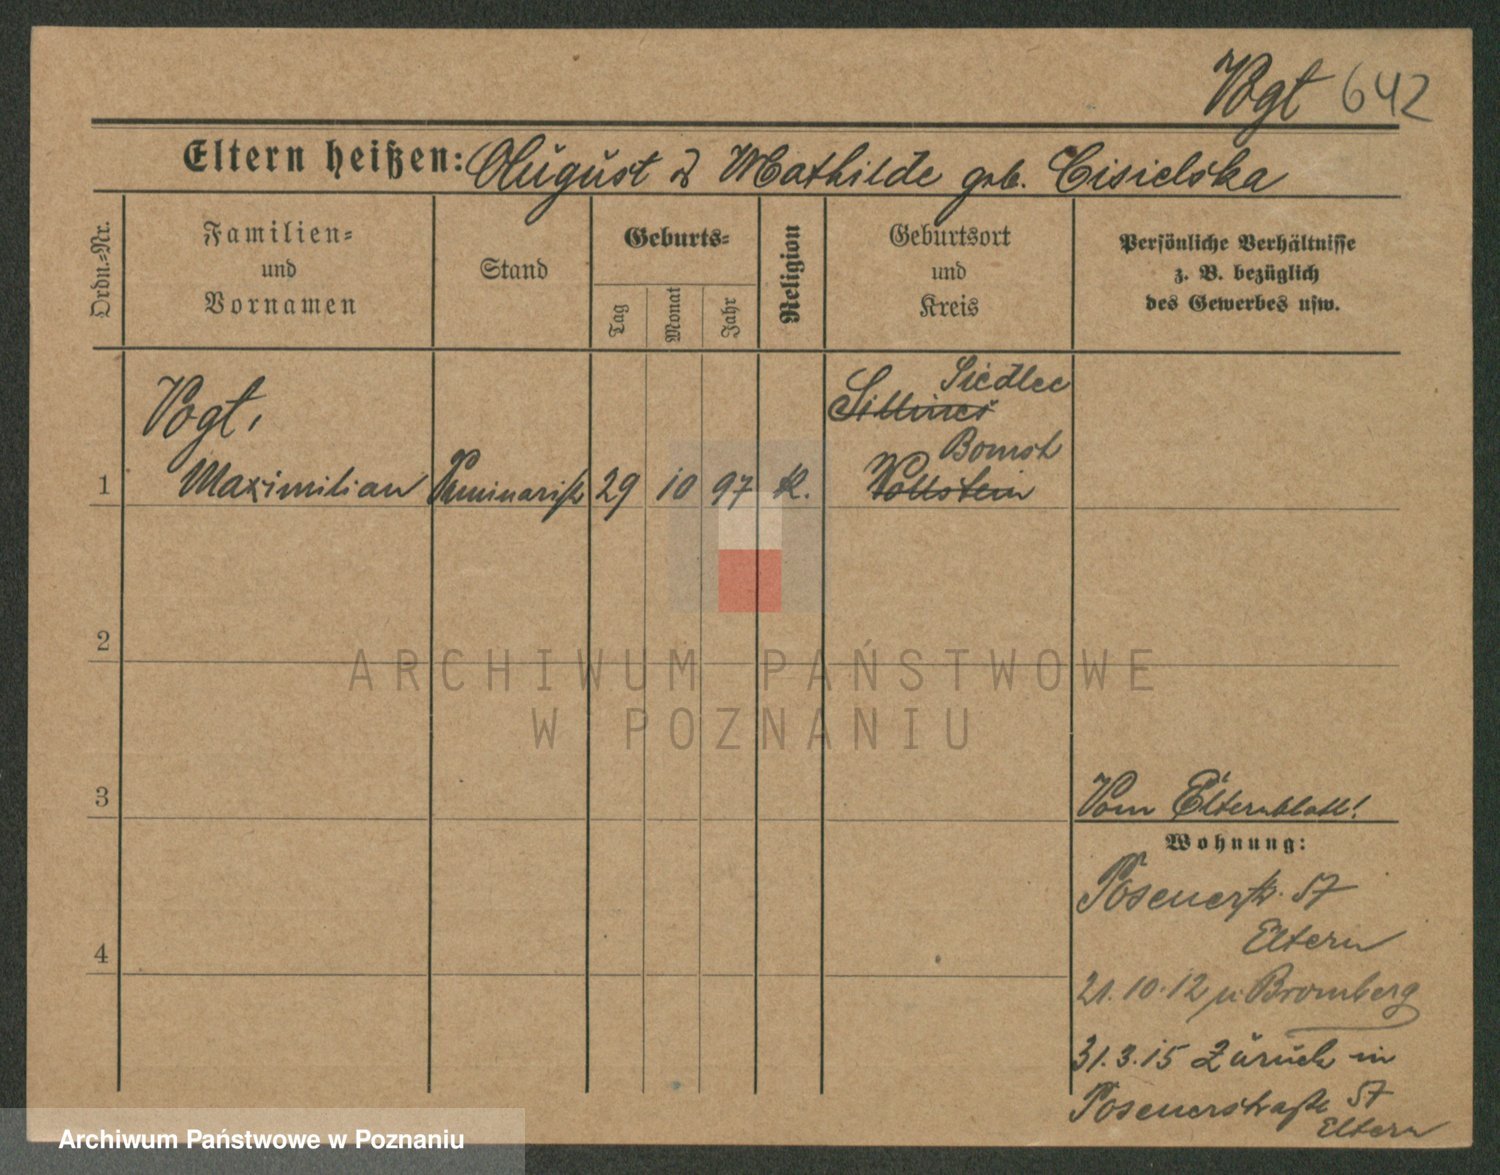 Vogt 642
Eltern heißen: August & Mathilde geb. Cisielska
Ordn.-Nr.
Familien-
und
Vornamen
Stand
Geburts-
Tag
Monat
Jahr
Religion
Geburtsort
und
Kreis
Persönliche Verhältnisse
z. B. bezüglich
des Gewerbes usw.
Vogt,
Siedlec
Bomst
1 Maximilian Seminarist 29 10 97 k. Wollstein
2
3
4
Vom Elternblatt!
Wohnung:
Posenerstr. 57
Eltern
21.10.12 n. Bromberg
31.3.15 Zurück in
Posenerstraße 57
Eltern
ARCHIWUM PAŃSTWOWE
W POZNANIU
Archiwum Państwowe w Poznaniu